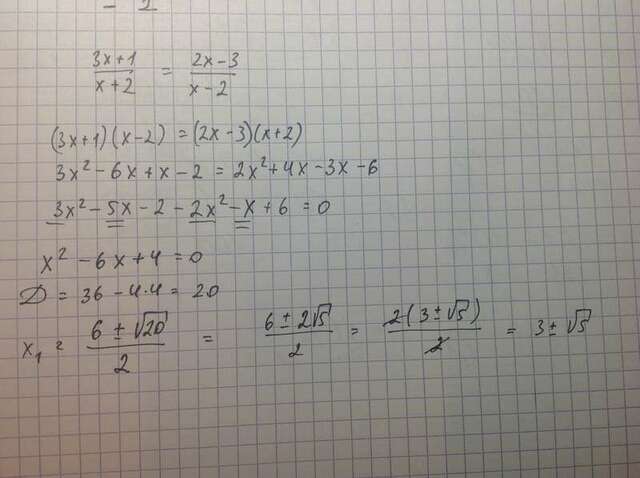 (3x+1)/(x+2) = (2x-3)/(x-2)
(3x+1)(x-2) = (2x-3)(x+2)
3x²-6x+x-2 = 2x²+4x-3x-6
3x²-5x-2-2x²-x+6 = 0
x²-6x+4=0
D = 36-4·4 = 20
x₁ = (6±√20)/2 = (6±2√5)/2 = 2(3±√5)/2 = 3±√5